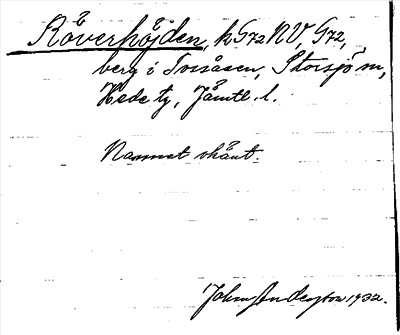 Röverhöjden, h G72 NV, G72,
berg i Tossåsen, Storsjö sn,
Hede tg, Jämtl. l.
Namnet okänt.
John Anderson 1932.